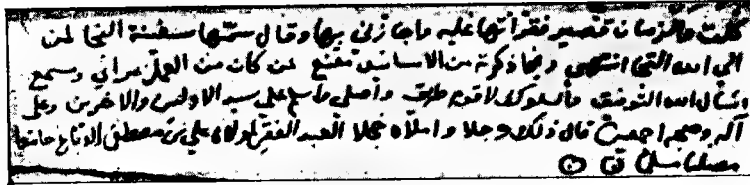 كملت والزمان قصير فقرأتها عليه واجازني بها وقال سمّتها سفينة النجا لمن
الى الله التجا انتهى وبما ذكرته من الاسانيد مقنع لمن كان من العمل بمرأى ومسمع
اسأل الله التوفيق والسلوك لاقوم طريق واصلي واسلم على سيد الاولين والاخرين وعلى
آله وصحبه اجمعين قال ذلك وجلا واملاه خجلا العبد الفقير علي بن مصطفى الدباغ حامدا
مصليا مسلما